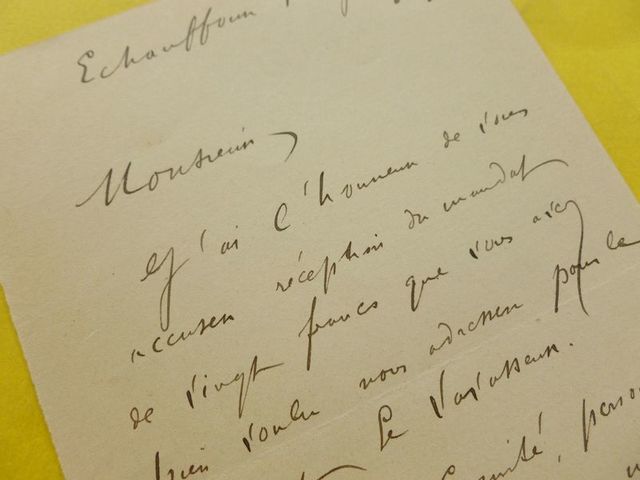 Echauffour
Monsieur
J'ai l'honneur de vous
accuser réception du mandat
de vingt francs que vous avez
bien voulu nous adresser pour le
Le Vavasseur.